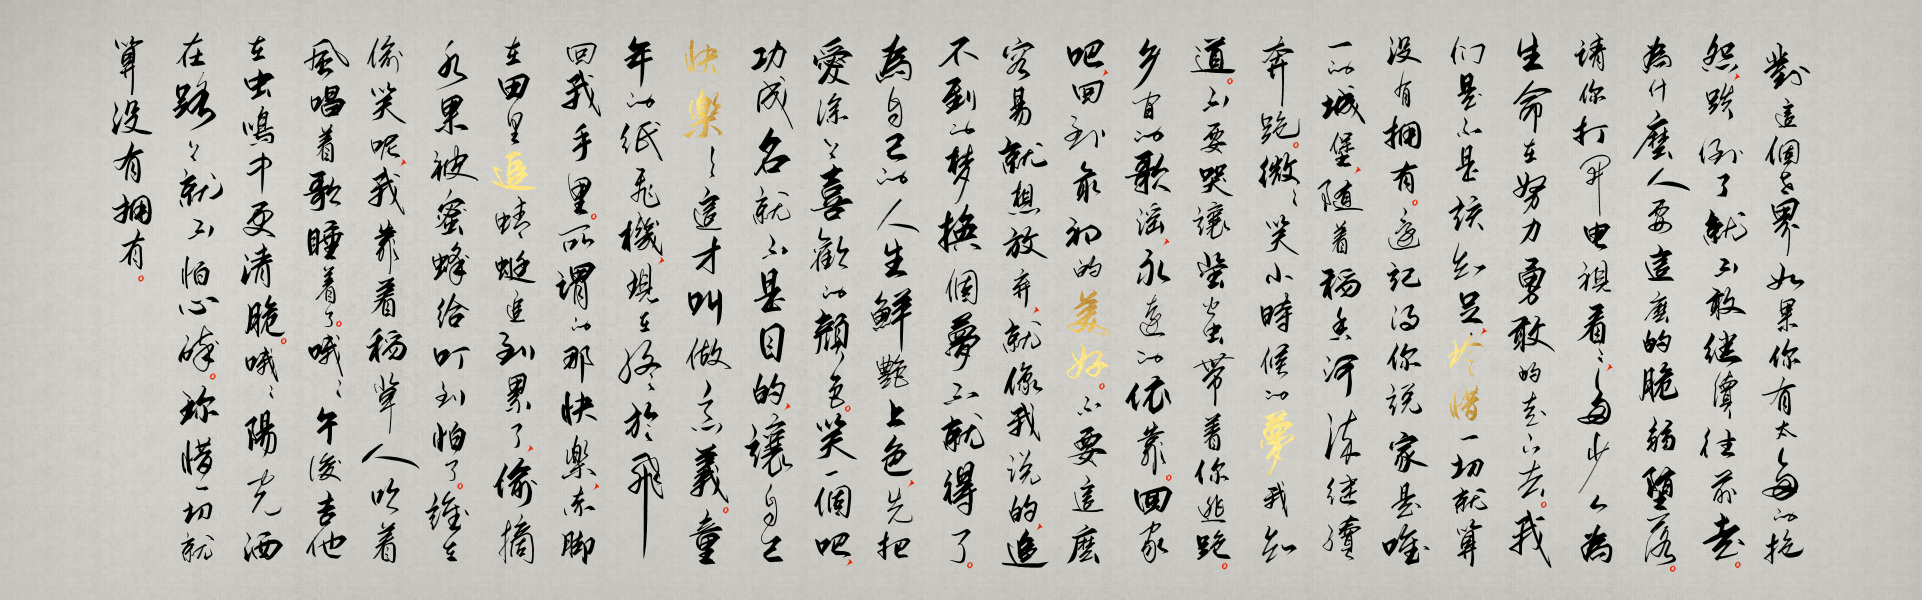 對這個世界如果你有太多的抱
怨,跌倒了就不敢继續往前走。
為什麼人要這麼的脆弱堕落。
請你打開电視看々,多少人為
生命在努力勇敢的走下去。我
们是不是該知足,珍惜一切就算
没有拥有。還記得你説家是唯
一的城堡,随着稻香河流继續
奔跑。微々笑小時候的夢我知
道。不要哭讓萤火虫带着你逃跑。
乡间的歌谣,永遠的依靠。回家
吧,回到最初的美好。不要這麼
容易就想放弃,就像我说的,追
不到的梦换個夢不就得了。
為自己的人生鲜艷上色,先把
愛涂上喜歡的颜色。笑一個吧,
功成名就不是目的,讓自己
快樂々々這才叫做意義。童
年的纸飛機,現在终於飛
回我手里。所謂的那快樂,赤脚
在田里追蜻蜓追到累了,偷摘
水果被蜜蜂给叮到怕了。誰在
偷笑呢,我靠着稻草人吹着
風唱着歌睡着了。哦々午後吉他
在虫鳴中更清脆。哦々陽光洒
在路上就不怕心碎。珍惜一切就
算没有拥有。